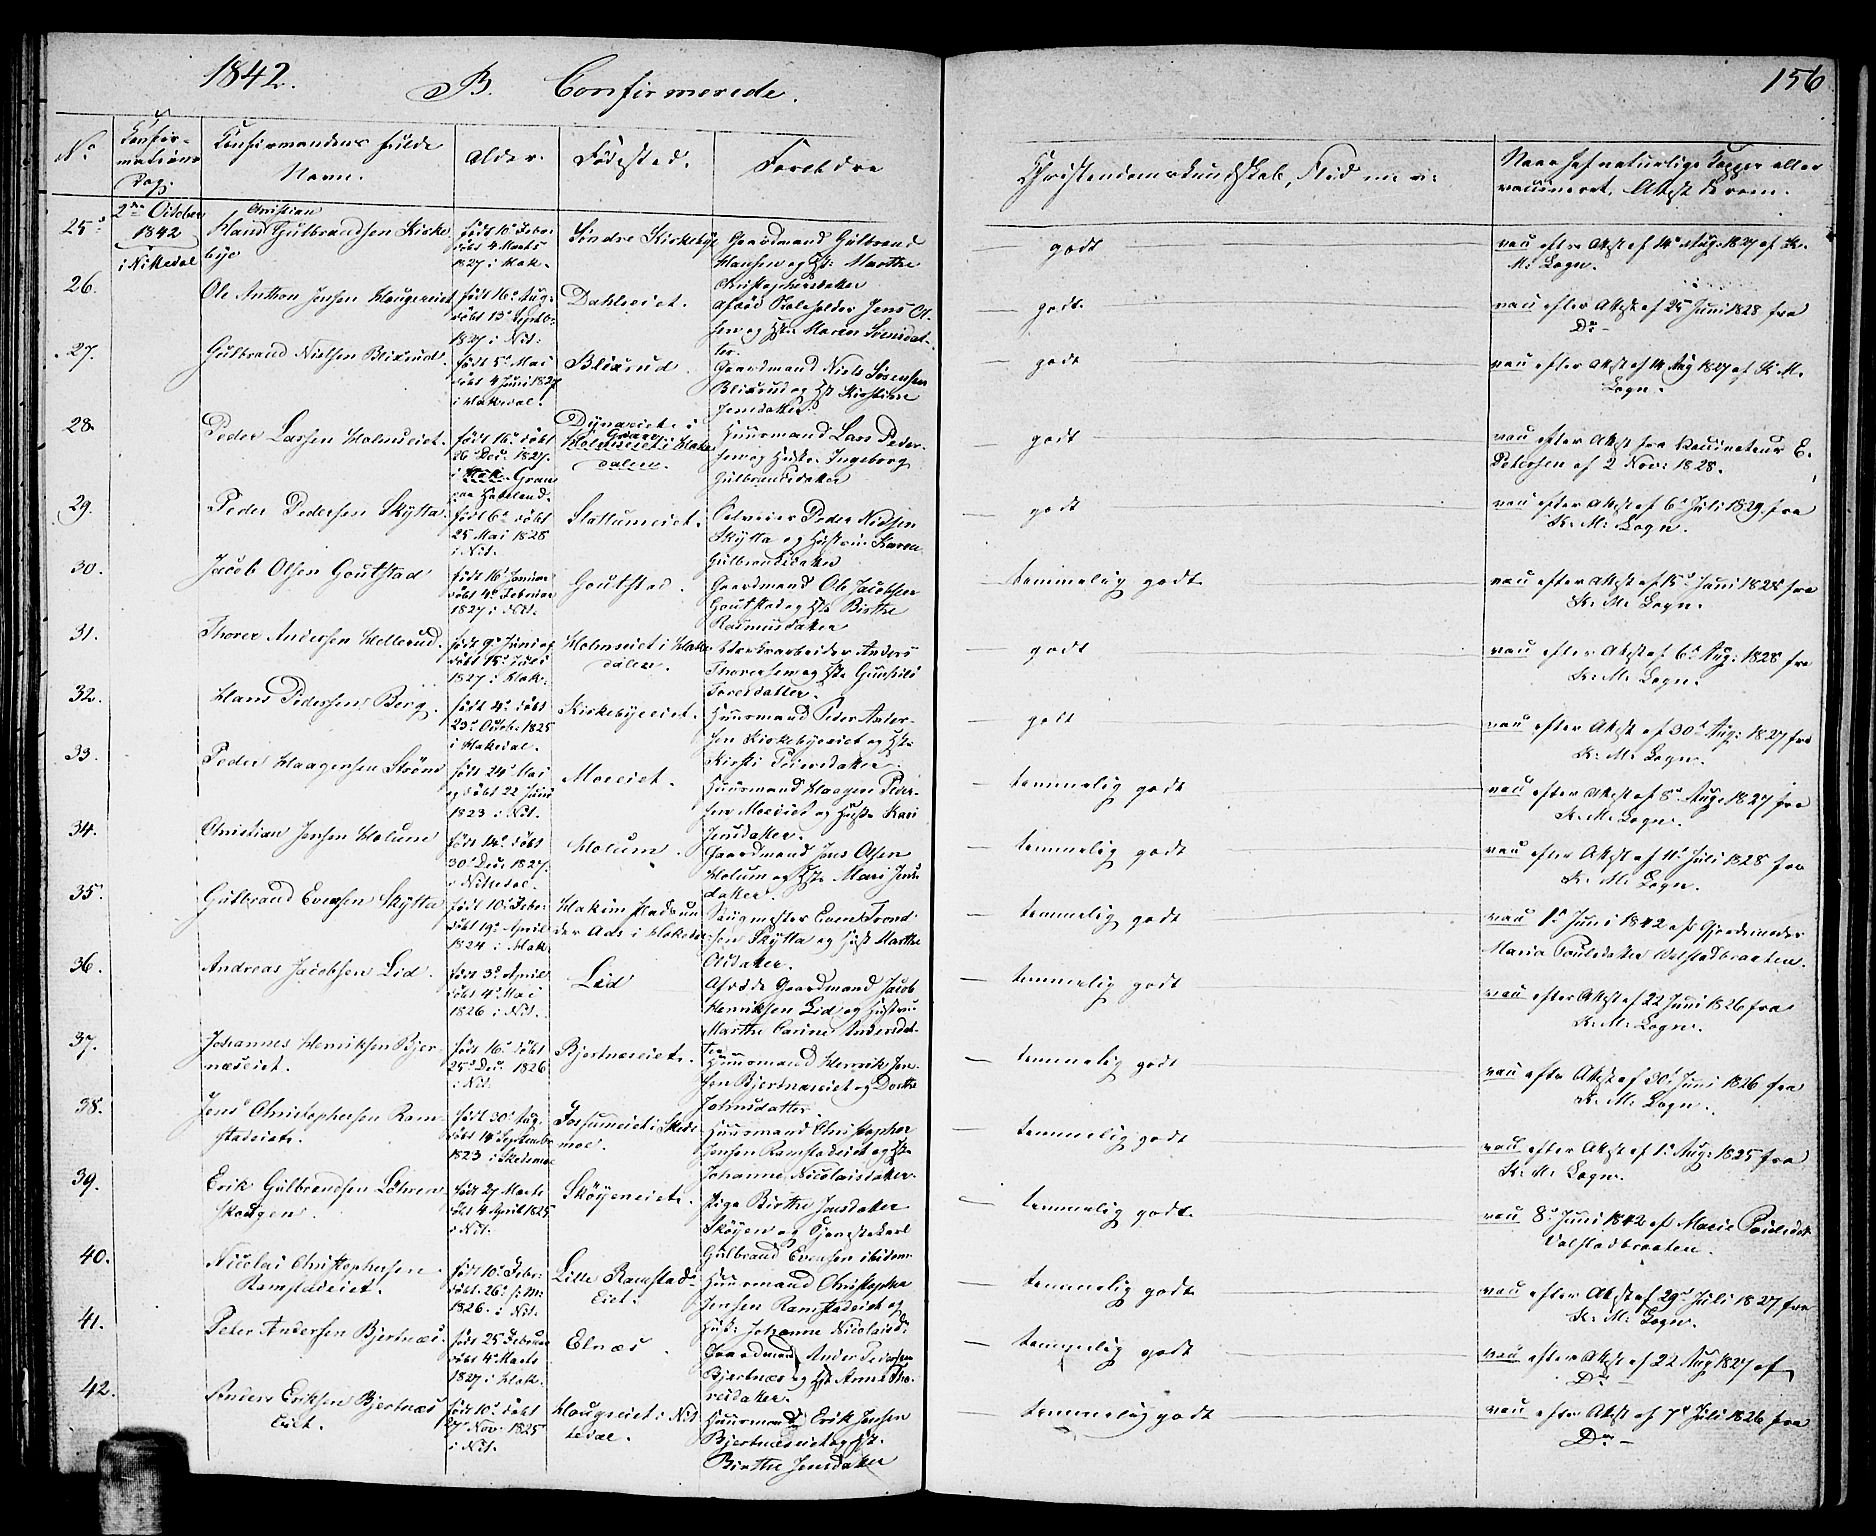 1842.
B. Confirmerede.
156
No
Confir-
mations
Dag.
Confirmandens fulde
Navn.
Alder.
Fødested.
Forældre
Christendomskundskab, Flid
Naar haft naturlige Kopper eller
vaccineret, Attest derom.
25.
2den October
1842
i Nittedal
Christian
Hans Gulbrandsen Kirke-
bye
født 10 Febr:
døbt 4 Marts
1827 i Hak.
Søndre Kirkebye
Gaardmand Gulbrand
Hansen og Hst: Marthe
Christophersdatter
— godt
vac efter Attest af 14 Aug: 1827 af K.
M: Sogn.
26.
Ole Anthon Jensen Haugereiet
født 16 Aug:
døbt 13 Septb:
1827 i Nit:
Dahleiet.
Jens Ol-
sen og Hst: Maren Svensdat-
ter.
— godt.
vac efter Attest af 25 Juni 1828 fra
Do —
27.
Gulbrand Nielsen Blixrud.
født 5 Mai
døbt 4 Juni 1827
i Hakedal.
Blixrud.
Gaardmand Niels Sørensen
Blixrud og Hst Kirstine
Jensdatter.
— godt
vac efter Attest af 14 Aug 1827 af K. M.
Sogn.
28.
Peder Larsen Holmseiet.
født 16 døbt
26 Dec. 1827.
i Hak. Gran
paa Hadeland.
i
Gran
Holmseiet i Hake-
dalen.
Huusmand Lars Peder-
sen og Hustr. Ingeborg
Gulbrandsdatter
— godt
vac efter Attest fra Vaccinateur E.
Petersen af 2 Nov: 1828.
29.
Peder Pedersen Skytta.
født 6 døbt
25 Mai 1828
i Nit.
Slattumeiet.
Peder Nielsen
Skytta og Hustru Karen
Gulbrandsdatter
— godt
vac efter Attest af 6 Juli 1829 fra
K. M: Sogn.
30.
Jacob Olsen Goutstad
født 16 Januar
døbt 4 Februar
1827 i Nit.
Goutstad.
Gaardmand Ole Jacobsen
Goutstad og Hst. Birthe
Rasmusdatter
— temmelig godt
vac efter Attest af 15 Juni 1828 fra
K. M: Sogn.
31.
Thorer Andersen Hellerud.
født 9 Juni og
døbt 15 Juli
1827 i Hak.
Holmseiet i Hake-
dalen.
Værksarbeider Anders
Thoresen og Hst: Gunhild
Toresdatter.
— godt
vac efter Attest af 6 Aug: 1828 fra
K. M: Sogn.
32.
Hans Pedersen Berg.
født 4 døbt
23 Octobr. 1825
i Hakedal.
Kirkebyeiet.
Huusmand Peder Ander-
sen Kirkebyeiet og Hst.
Kirsti Pedersdatter.
— godt
vac efter Attest af 30 Aug: 1827 fra
K. M: Sogn.
33.
Peder Haagensen Strøm
født 24 Mai
og døbt 22 Juni
1823 i Nit.
Moeiet.
Huusmand Haagen Peder-
sen Moeiet og Hustr. Kari
Jensdatter.
— temmelig godt
vac efter Attest af 8 Aug: 1827 fra
K. M: Sogn.
34.
Christian Jensen Holum
født 14 døbt
30 Dec. 1827.
i Nittedal.
Holum.
Gaardmand Jens Olsen
Holum og Hst. Mari Jens-
datter.
— temmelig godt
vac efter Attest af 11 Juli 1828 fra
K. M: Sogn.
35.
Gulbrand Evensen Skytta
født 10 Febr:
døbt 19 April
1824 i Hak.
Hakims Plads un-
der Aas i Hakedal
Saugmester Even Trond-
sen Skytta og Hust Marthe
Olsdatter.
— temmelig godt
vac 1 Juni 1842 af Gjordemoder
Maria Paulsdatter Wolstadbraaten.
36.
Andreas Jacobsen Lid.
født 3 April
døbt 4 Mai
1826 i Nit.
Lid
Afdøde Gaardmand Jacob
Henriksen Lid og Hustru
Marthe Carine Andersdat-
ter
— temmelig godt
vac efter Attest af 22 Juni 1826 fra
K. M: Sogn.
37.
Johannes Henriksen Bjert-
næseiet.
født 16 døbt
25 Dec. 1826
i Nit.
Bjertnæseiet.
Huusmand Henrik Jen-
sen Bjertnæseiet og Dorthe
Johnsdatter.
— temmelig godt
vac efter Attest af 30 Juni 1826 fra
K. M: Sogn.
38.
Jens Christophersen Ram-
stadeiet.
født 30 Aug.
døbt 14 September
1823 i Skedsmoe
Fossumeiet i Skeds-
moe.
Huusmand Christopher
Jensen Ramstadeiet og Hst.
Johanne Nicolaisdatter.
— temmelig godt
vac efter Attest af 1 Aug: 1825 fra
K. M: Sogn.
39.
Erik Gulbrandsen Løhren-
skougen.
født 27 Marts
døbt 4 April 1825
i Nit.
Skøyeneiet.
Pige Birthe Jensdatter
Skøyen og Tjenestekarl
Gulbrand Evensen ibidem.
— temmelig godt.
vac 8 Juni 1842 af Marie Poulsdt
Valstadbraaten.
40.
Nicolai Christophersen
Ramstadeiet.
født 10 Febr:
døbt 26 s: M:
1826. i Nit.
Lille Ramstads
Eiet.
Huusmand Christopher
Jensen Ramstadeiet og
Hust: Johanne Nicolaisd:
— temmelig godt
vac efter Attest af 29 Juli 1827 fra
K. M: Sogn.
41.
Peter Andersen Bjertnæs.
født 25 Februar
døbt 4 Marts
1827 i Hak.
Elnæs.
Gaardmand Anders Pedersen
Bjertnæs og Hst Anne Tho-
resdatter.
— temmelig godt
vac efter Attest af 22 Aug 1827 af
Do —
42.
Anders Eriksen Bjertnæs
Eiet.
født 10 døbt
27 Nov. 1825
i Nit.
Haugseiet i Nit-
tedal.
Huusmand Erik Jensen
Bjertnæseiet og Hst.
Birthe Jensdatter
— temmelig godt
vac efter Attest af 7 Juli 1826 fra
Do —